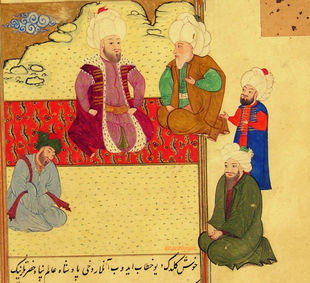 خوش کلدک یو خطاب ایدوب آنلر دخی پادشاه عالم پناه حضرتلرینک